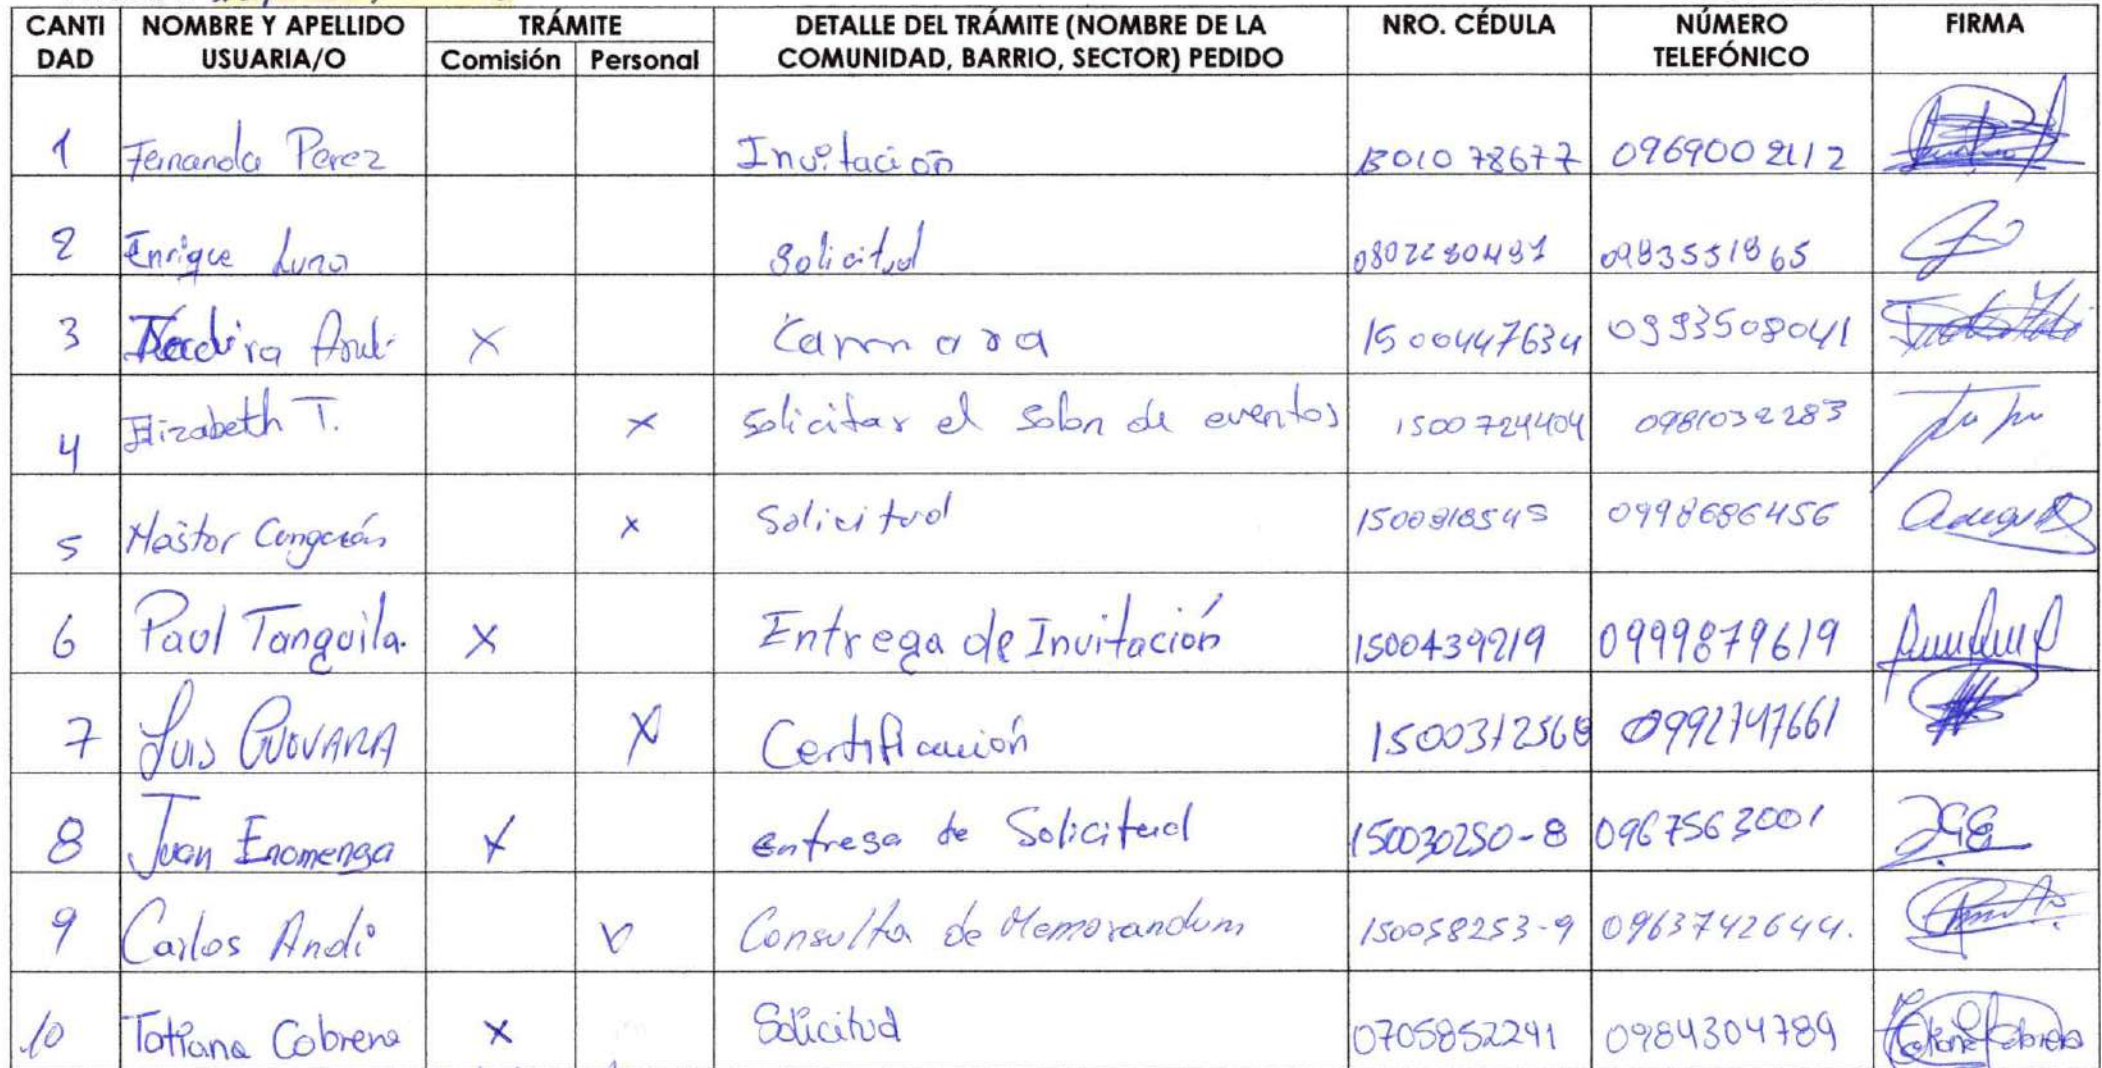 CANTIDAD NOMBRE Y APELLIDO USUARIA/O TRÁMITE Comisión Personal DETALLE DEL TRÁMITE (NOMBRE DE LA COMUNIDAD, BARRIO, SECTOR) PEDIDO NRO. CÉDULA NÚMERO TELEFÓNICO FIRMA
1 Fernanda Perez Invitación 0969002112
2 Enrique Luna Solicitud
3 Andi X 0993508041
4 Elizabeth T. x Solicitar el Salon de eventos 1500724404 0981032283
5 x Solicitud 0998686456
6 Paul Tanguila. X Entrega de Invitación 1500439219 0999879619
7 Luis GUEVARA X Certificación 1500312568 0992747661
8 Juan Enomenga X entrega de Solicitud 150030250-8 0967563001
9 Carlos Andi Consulta de Memorandum 150058253-9 0963742644.
10 Tatiana Cabrera X Solicitud 0705852241 0984304789